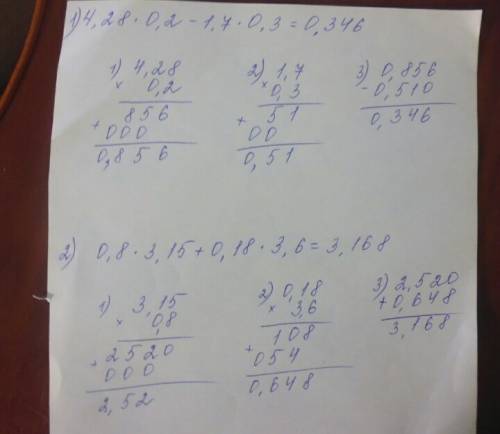 1) 4,28 · 0,2 - 1,7 · 0,3 = 0,346
1) 4,28
× 0,2
856
+ 000
0,856
2) 1,7
× 0,3
51
+ 00
0,51
3) 0,856
- 0,510
0,346
2) 0,8 · 3,15 + 0,18 · 3,6 = 3,168
1) 3,15
× 0,8
2520
+ 000
2,52
2) 0,18
× 3,6
108
+ 054
0,648
3) 2,520
+ 0,648
3,168